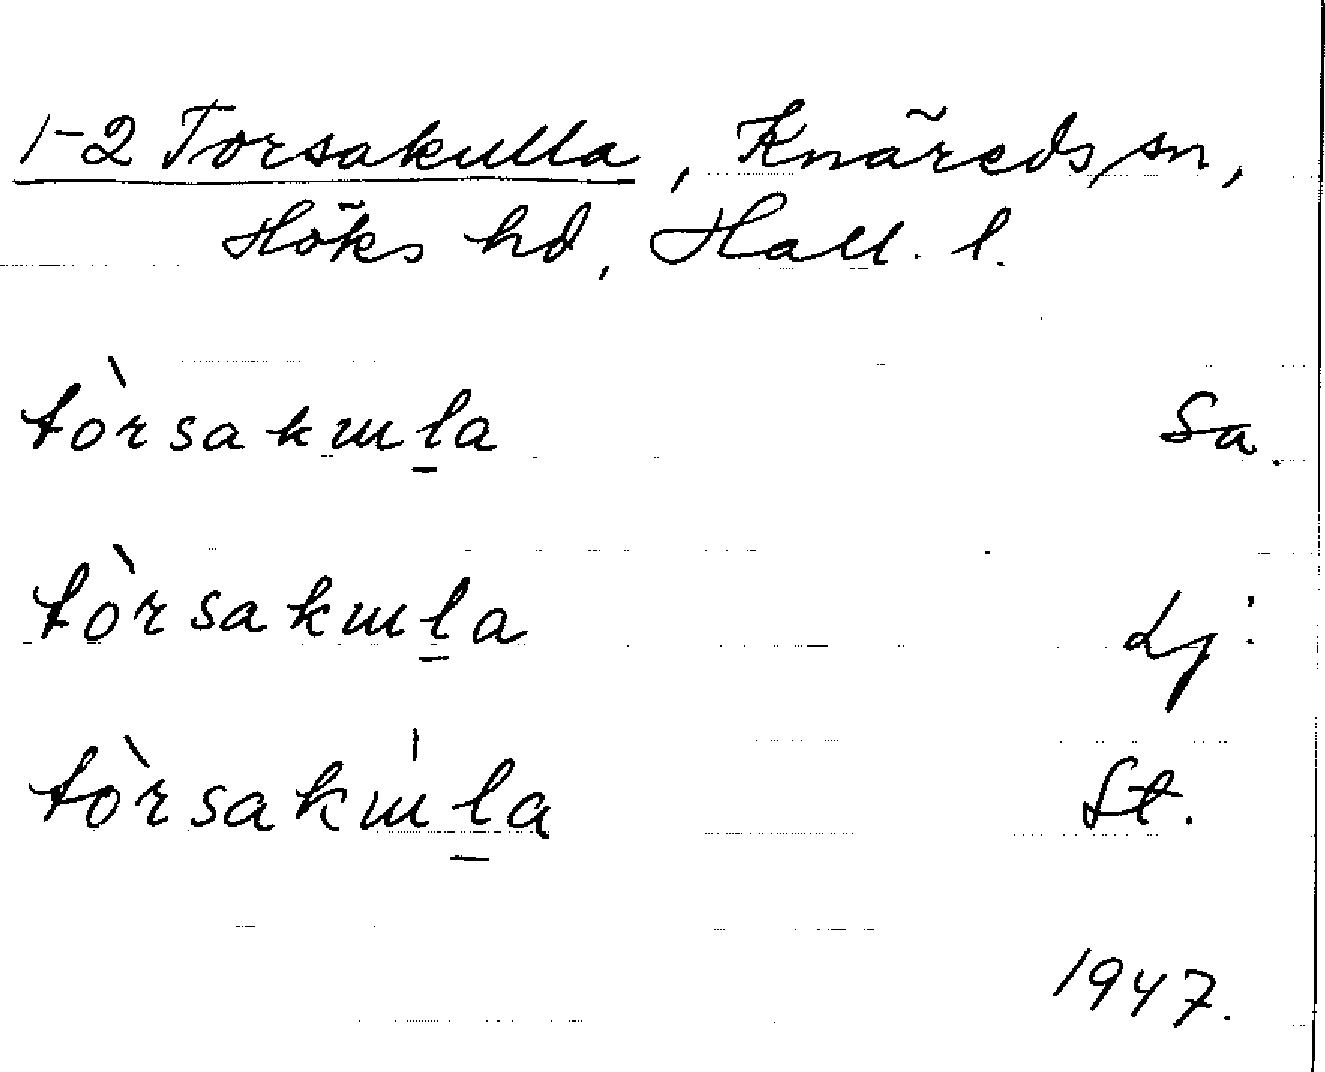 1-2 Torsakulla, Knäreds sn,
Höks hd, Hall. l.
tòrsakɯl̲a Sa.
tòrsakɯl̲a Lj.
tòrsakɯ̍l̲a St.
1947.